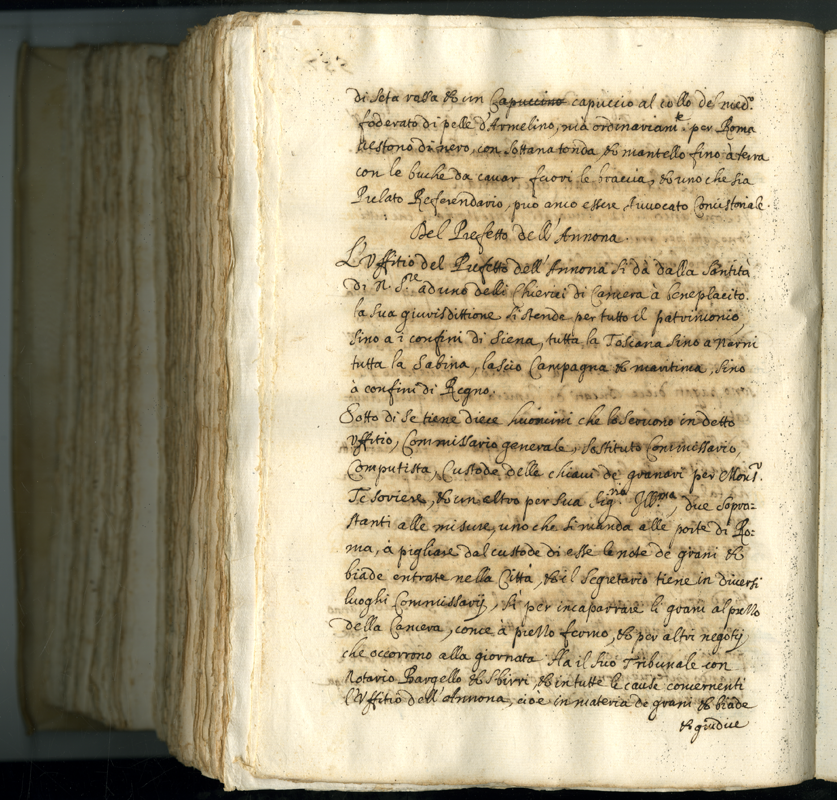 di seta rossa & un Capuccino capuccio al collo del med.º
foderato di pelle d'Armelino, mà ordinariam.te per Roma
Vestono di nero, con sottana tonda, & mantello fino à terra
con le buche da cauar fuori le braccia, & uno che sia
Prelato Referendario, può anco essere Auuocato Concistoriale.
Del Prefetto dell'Annona.
L'Vffitio del Prefetto dell'Annona si dà dalla Santità
di N. S.re ad uno delli Chierici di Camera à beneplacito.
la sua giurisdittione si stende per tutto il patrimonio,
sino a i confini di Siena, tutta la Toscana sino a Narni
tutta la Sabina, lascio Campagna & maritima, sino
à confini di Regno.
Sotto di se tiene diece huomini che lo seruono in detto
Vffitio, Commissario generale, sostituto Commissario,
Computista, Custode delle chiaui de granari per Mons.r
Tesoriere, & un altro per sua Sig.ria Ill.ma, due sopra-
stanti alle misure, uno che si manda alle porte di Ro:
ma, à pigliare dal custode di esse le note de grani &
biade entrate nella Città, & il segretario tiene in diuersi
luoghi Commissarij, sì per incaparrare li grani al prezzo
della Camera, come à prezzo fermo, & per altri negotij
che occorrono alla giornata Ha il suo Tribunale con
Notario Bargello & Sbirri, & in tutte le cause concernenti
l'Vffitio dell'Annona, cioè in materia de grani & biade
& giudice